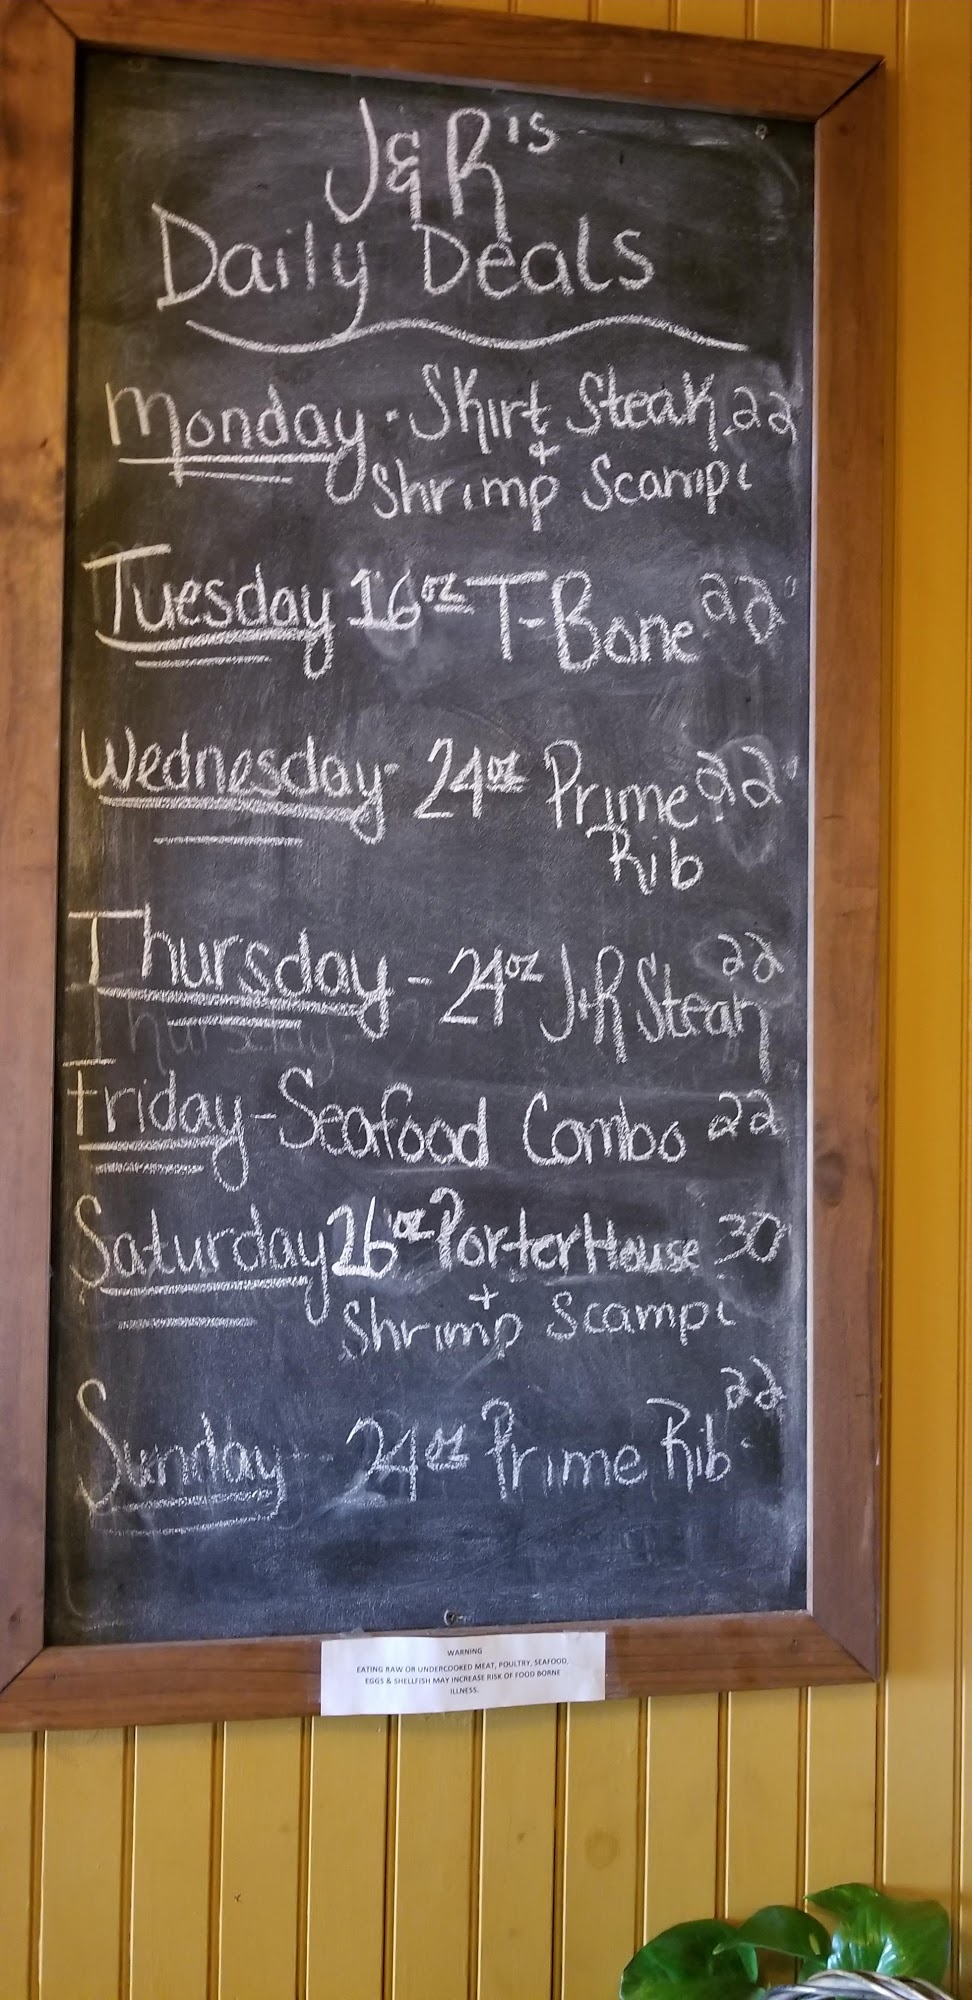 J&R's
Daily Deals
Monday - Skirt Steak 22
+
Shrimp Scampi
Tuesday 16oz T-Bone 22
Wednesday - 24oz Prime 22
Rib
Thursday - 24oz J+R Steak 22
Friday - Seafood Combo 22
Saturday 26oz PorterHouse 30
+
Shrimp Scampi
Sunday - 24oz Prime Rib 22
WARNING
EATING RAW OR UNDERCOOKED MEAT, POULTRY, SEAFOOD,
EGGS & SHELLFISH MAY INCREASE RISK OF FOOD BORNE
ILLNESS.